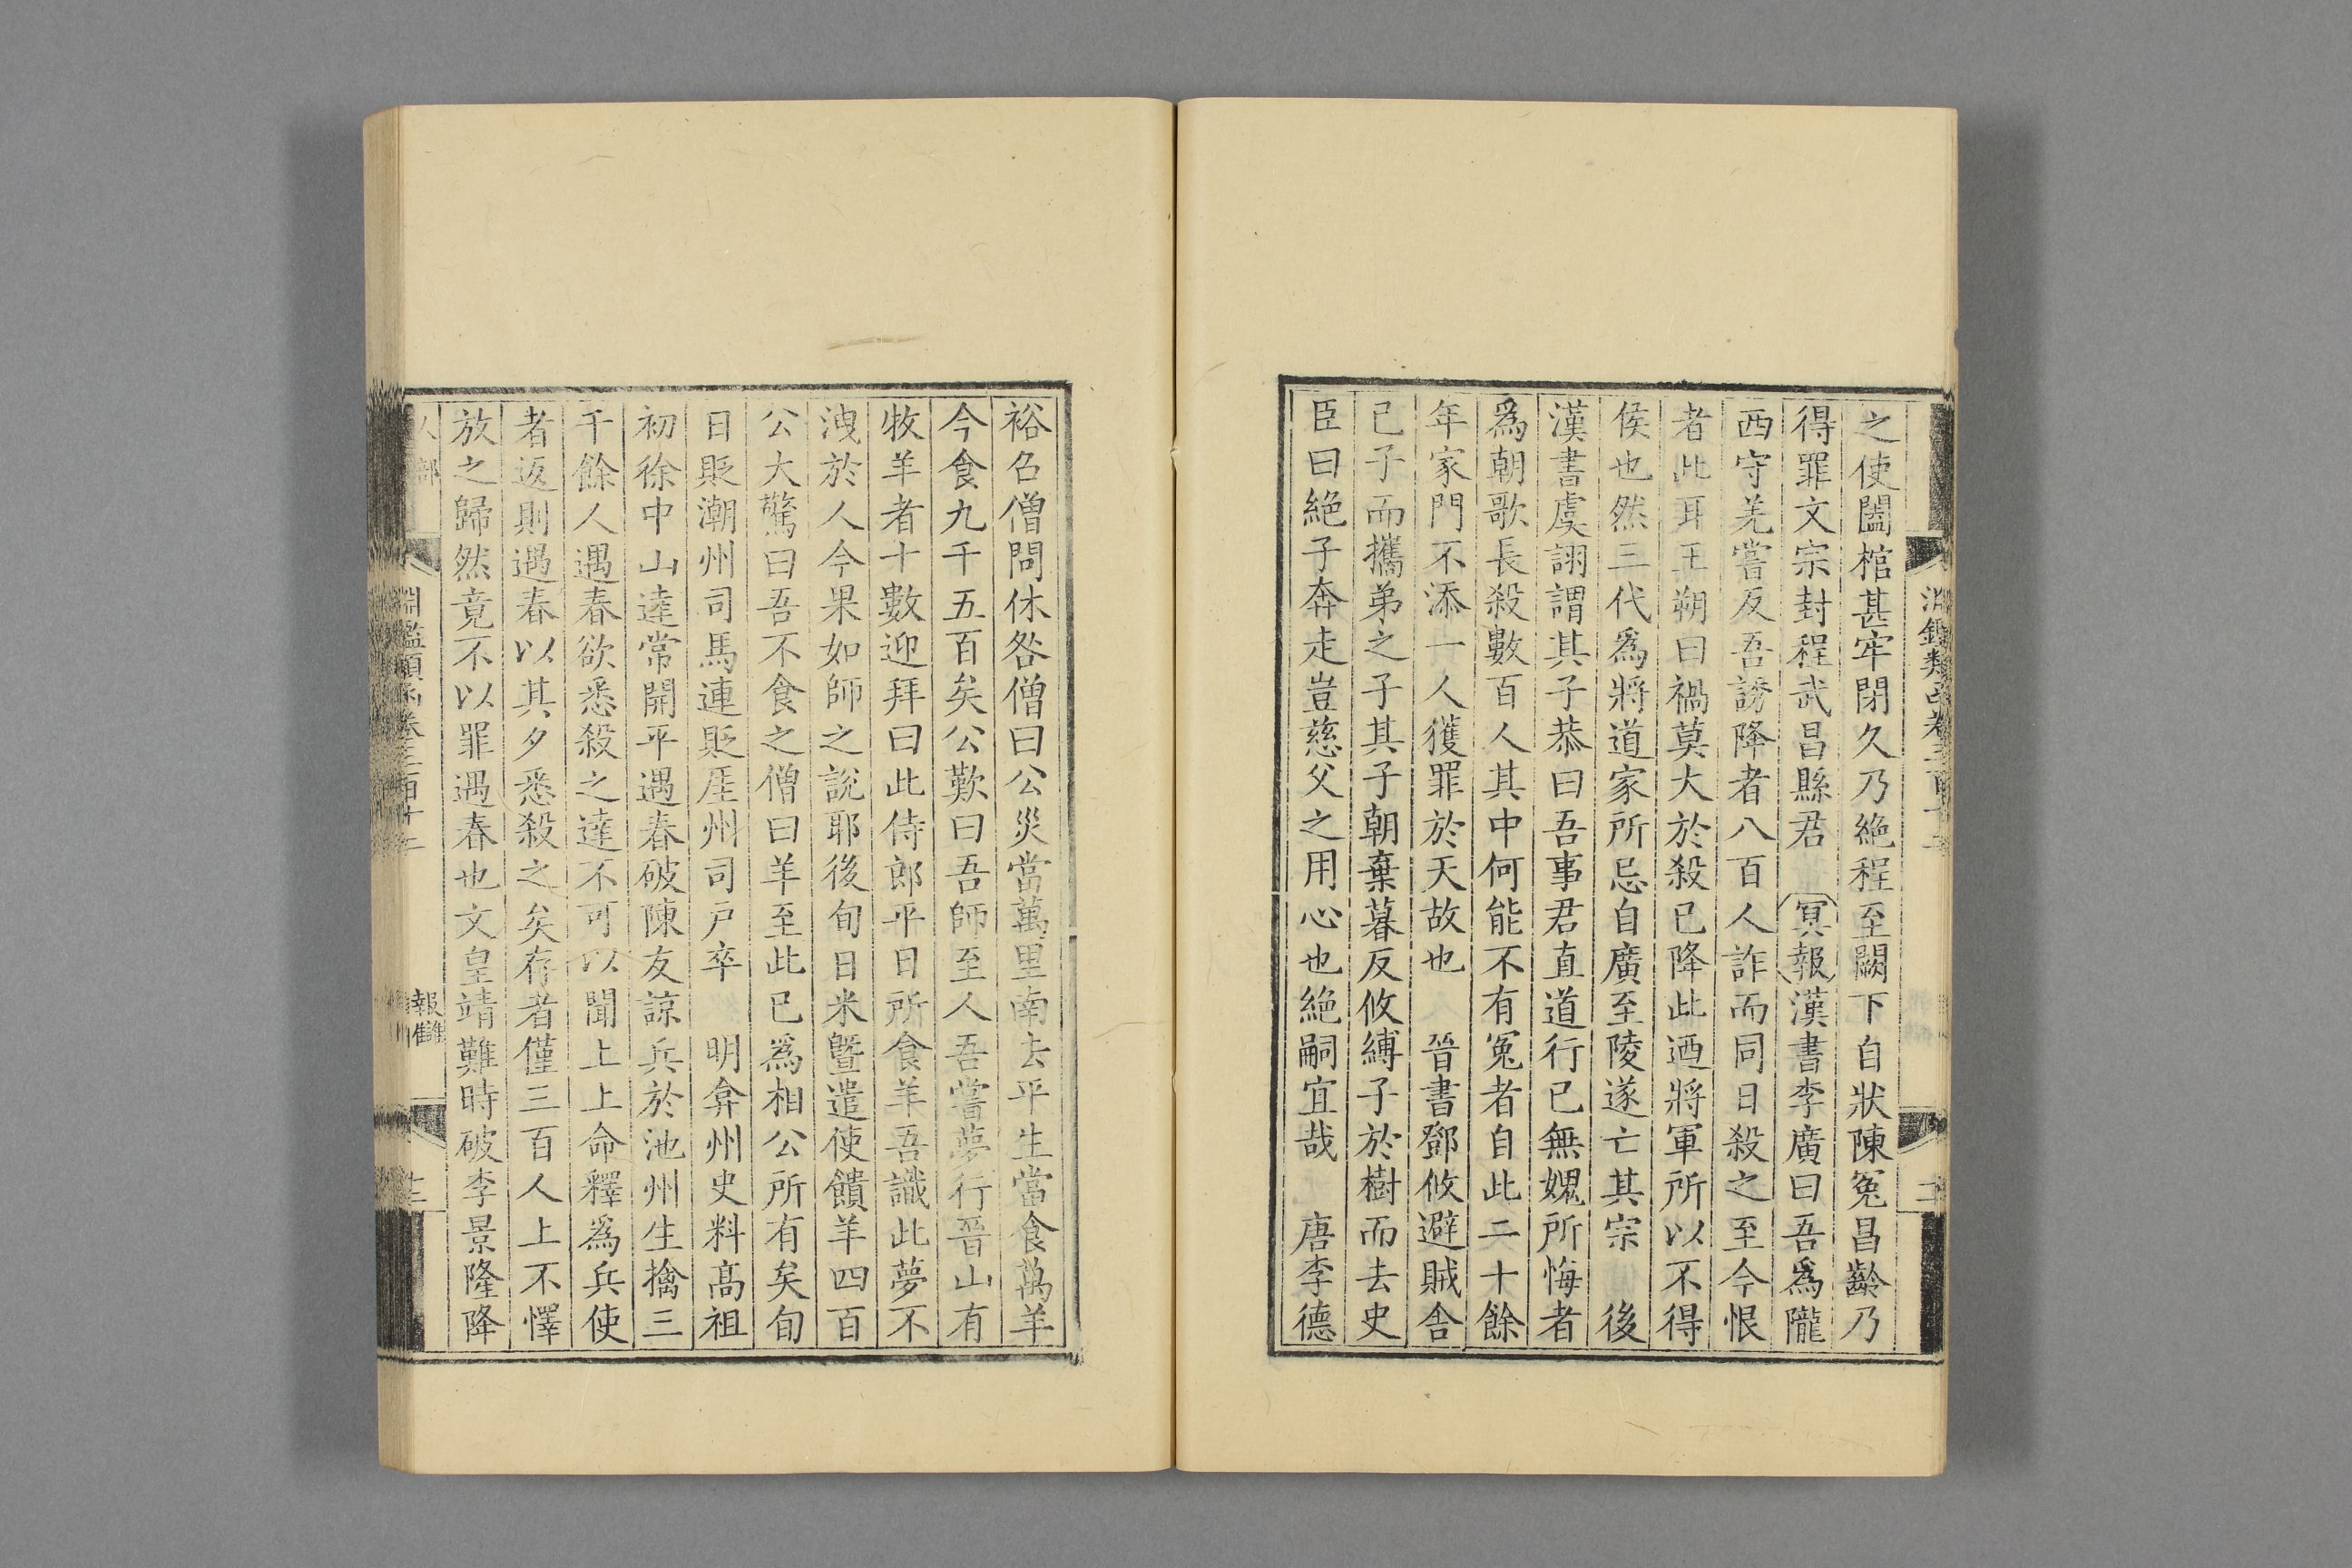 之使闔棺甚牢閉久乃絶程至闕下自狀陳冤昌齡乃
得罪文宗封程武昌縣君 冥報漢書李廣曰吾爲隴
西守羌嘗反吾誘降者八百人詐而同日殺之至今恨
者此耳王朔曰禍莫大於殺已降此迺將軍所以不得
侯也然三代爲將道家所忌自廣至陵遂亡其宗 後
漢書虞詡謂其子恭曰吾事君直道行已無媿所悔者
爲朝歌長殺數百人其中何能不有冤者自此二十餘
年家門不添一人獲罪於天故也 晉書鄧攸避賊舎
已子而攜弟之子其子朝棄暮反攸縛子於樹而去史
臣曰絶子奔走豈慈父之用心也絶嗣宜哉 唐李德
裕名僧問休咎僧曰公災當萬里南去平生當食萬羊
今食九千五百矣公歎曰吾師至人吾嘗夢行晉山有
牧羊者十數迎拜曰此侍郎平日所食羊吾識此夢不
洩於人今果如師之說耶後旬日米曁遣使饋羊四百
公大驚曰吾不食之僧曰羊至此已為相公所有矣旬
日貶潮州司馬連貶厓州司戶卒 明弇州史料高祖
初徐中山達常開平遇春破陳友諒兵於池州生擒三
千餘人遇春欲悉殺之達不可以聞上上命釋爲兵使
者返則遇春以其夕悉殺之矣存者僅三百人上不懌
放之歸然竟不以罪遇春也文皇靖難時破李景隆降
人部 淵鑑類函卷三百十二 報讐